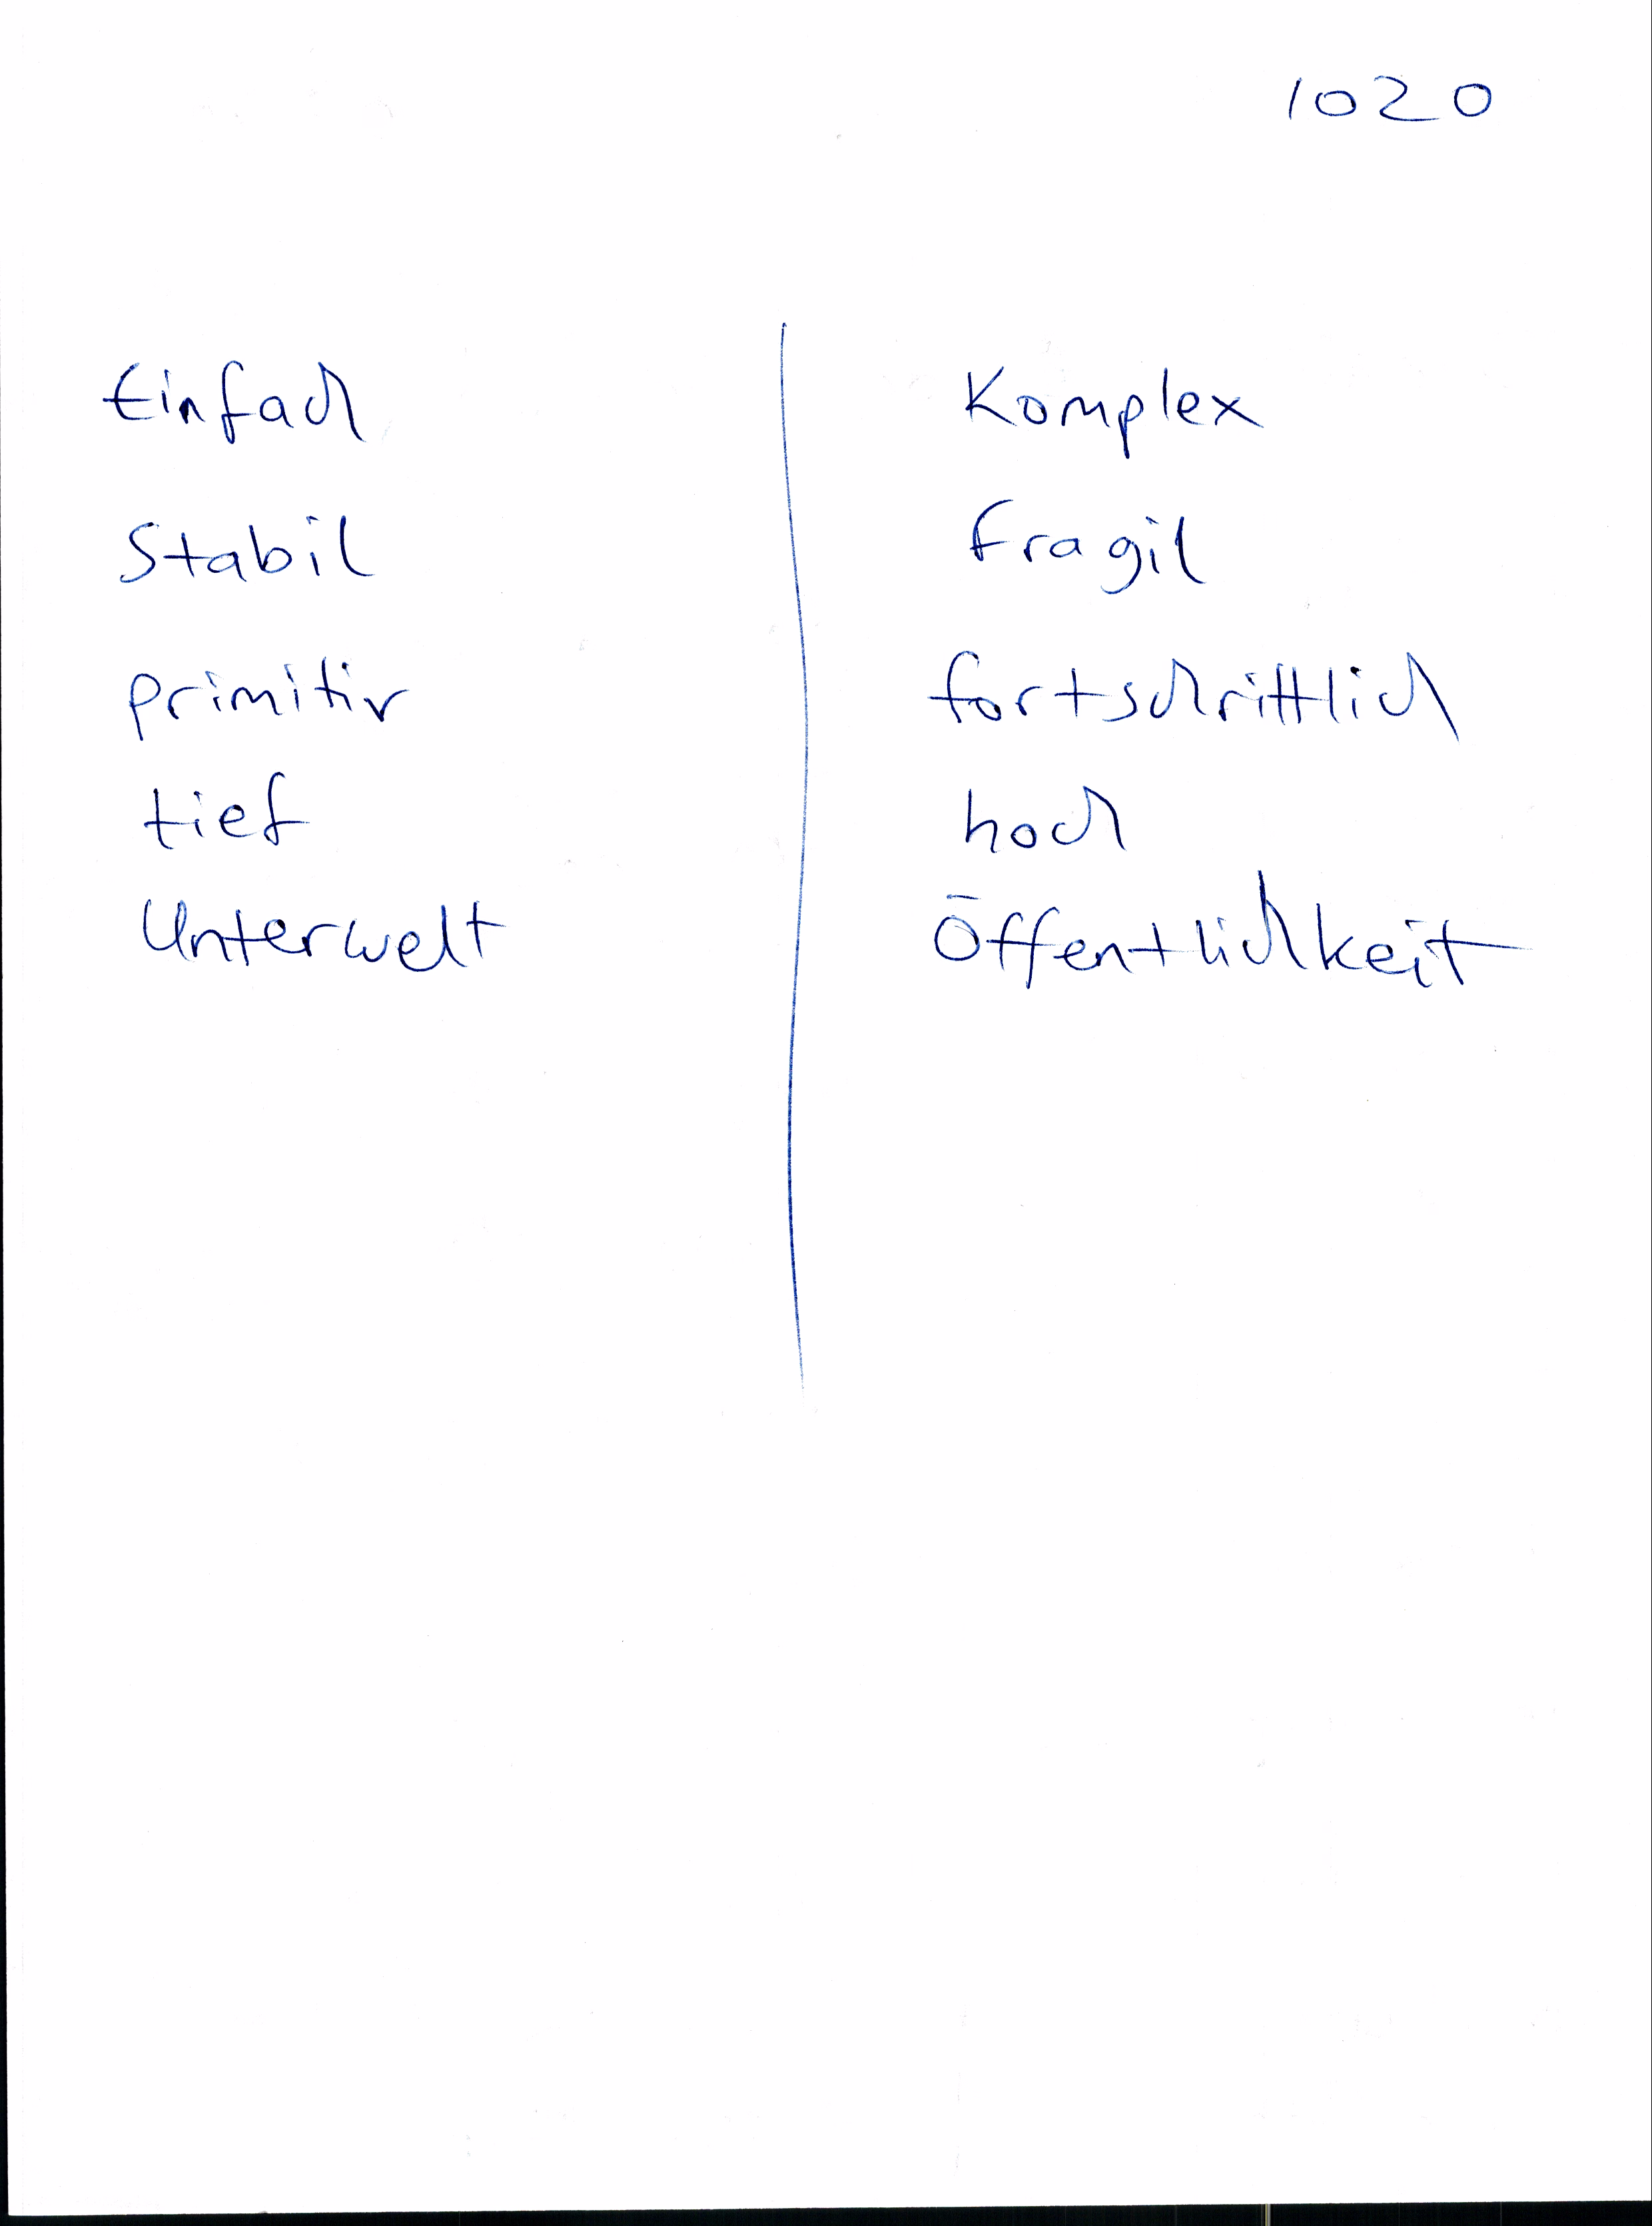 1020
Einfach Komplex
Stabil Fragil
primitiv fortschrittlich
tief hoch
Unterwelt Öffentlichkeit